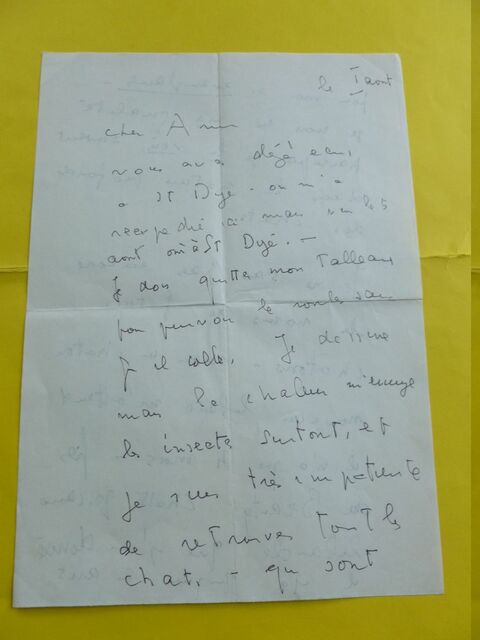 le 7 aout
cher Ami
vous avez déjé écrit
a St Dyé - on m'a
mais les 5
aout St Dyé. -
Je dois quitter mon Tableau
pour pouvoir le rouler sans
qu'il colle. Je dessine
mais la chaleur m'enrage
les insectes surtout, et
je suis très impatiente
de retrouver tout les
chats. - qui sont